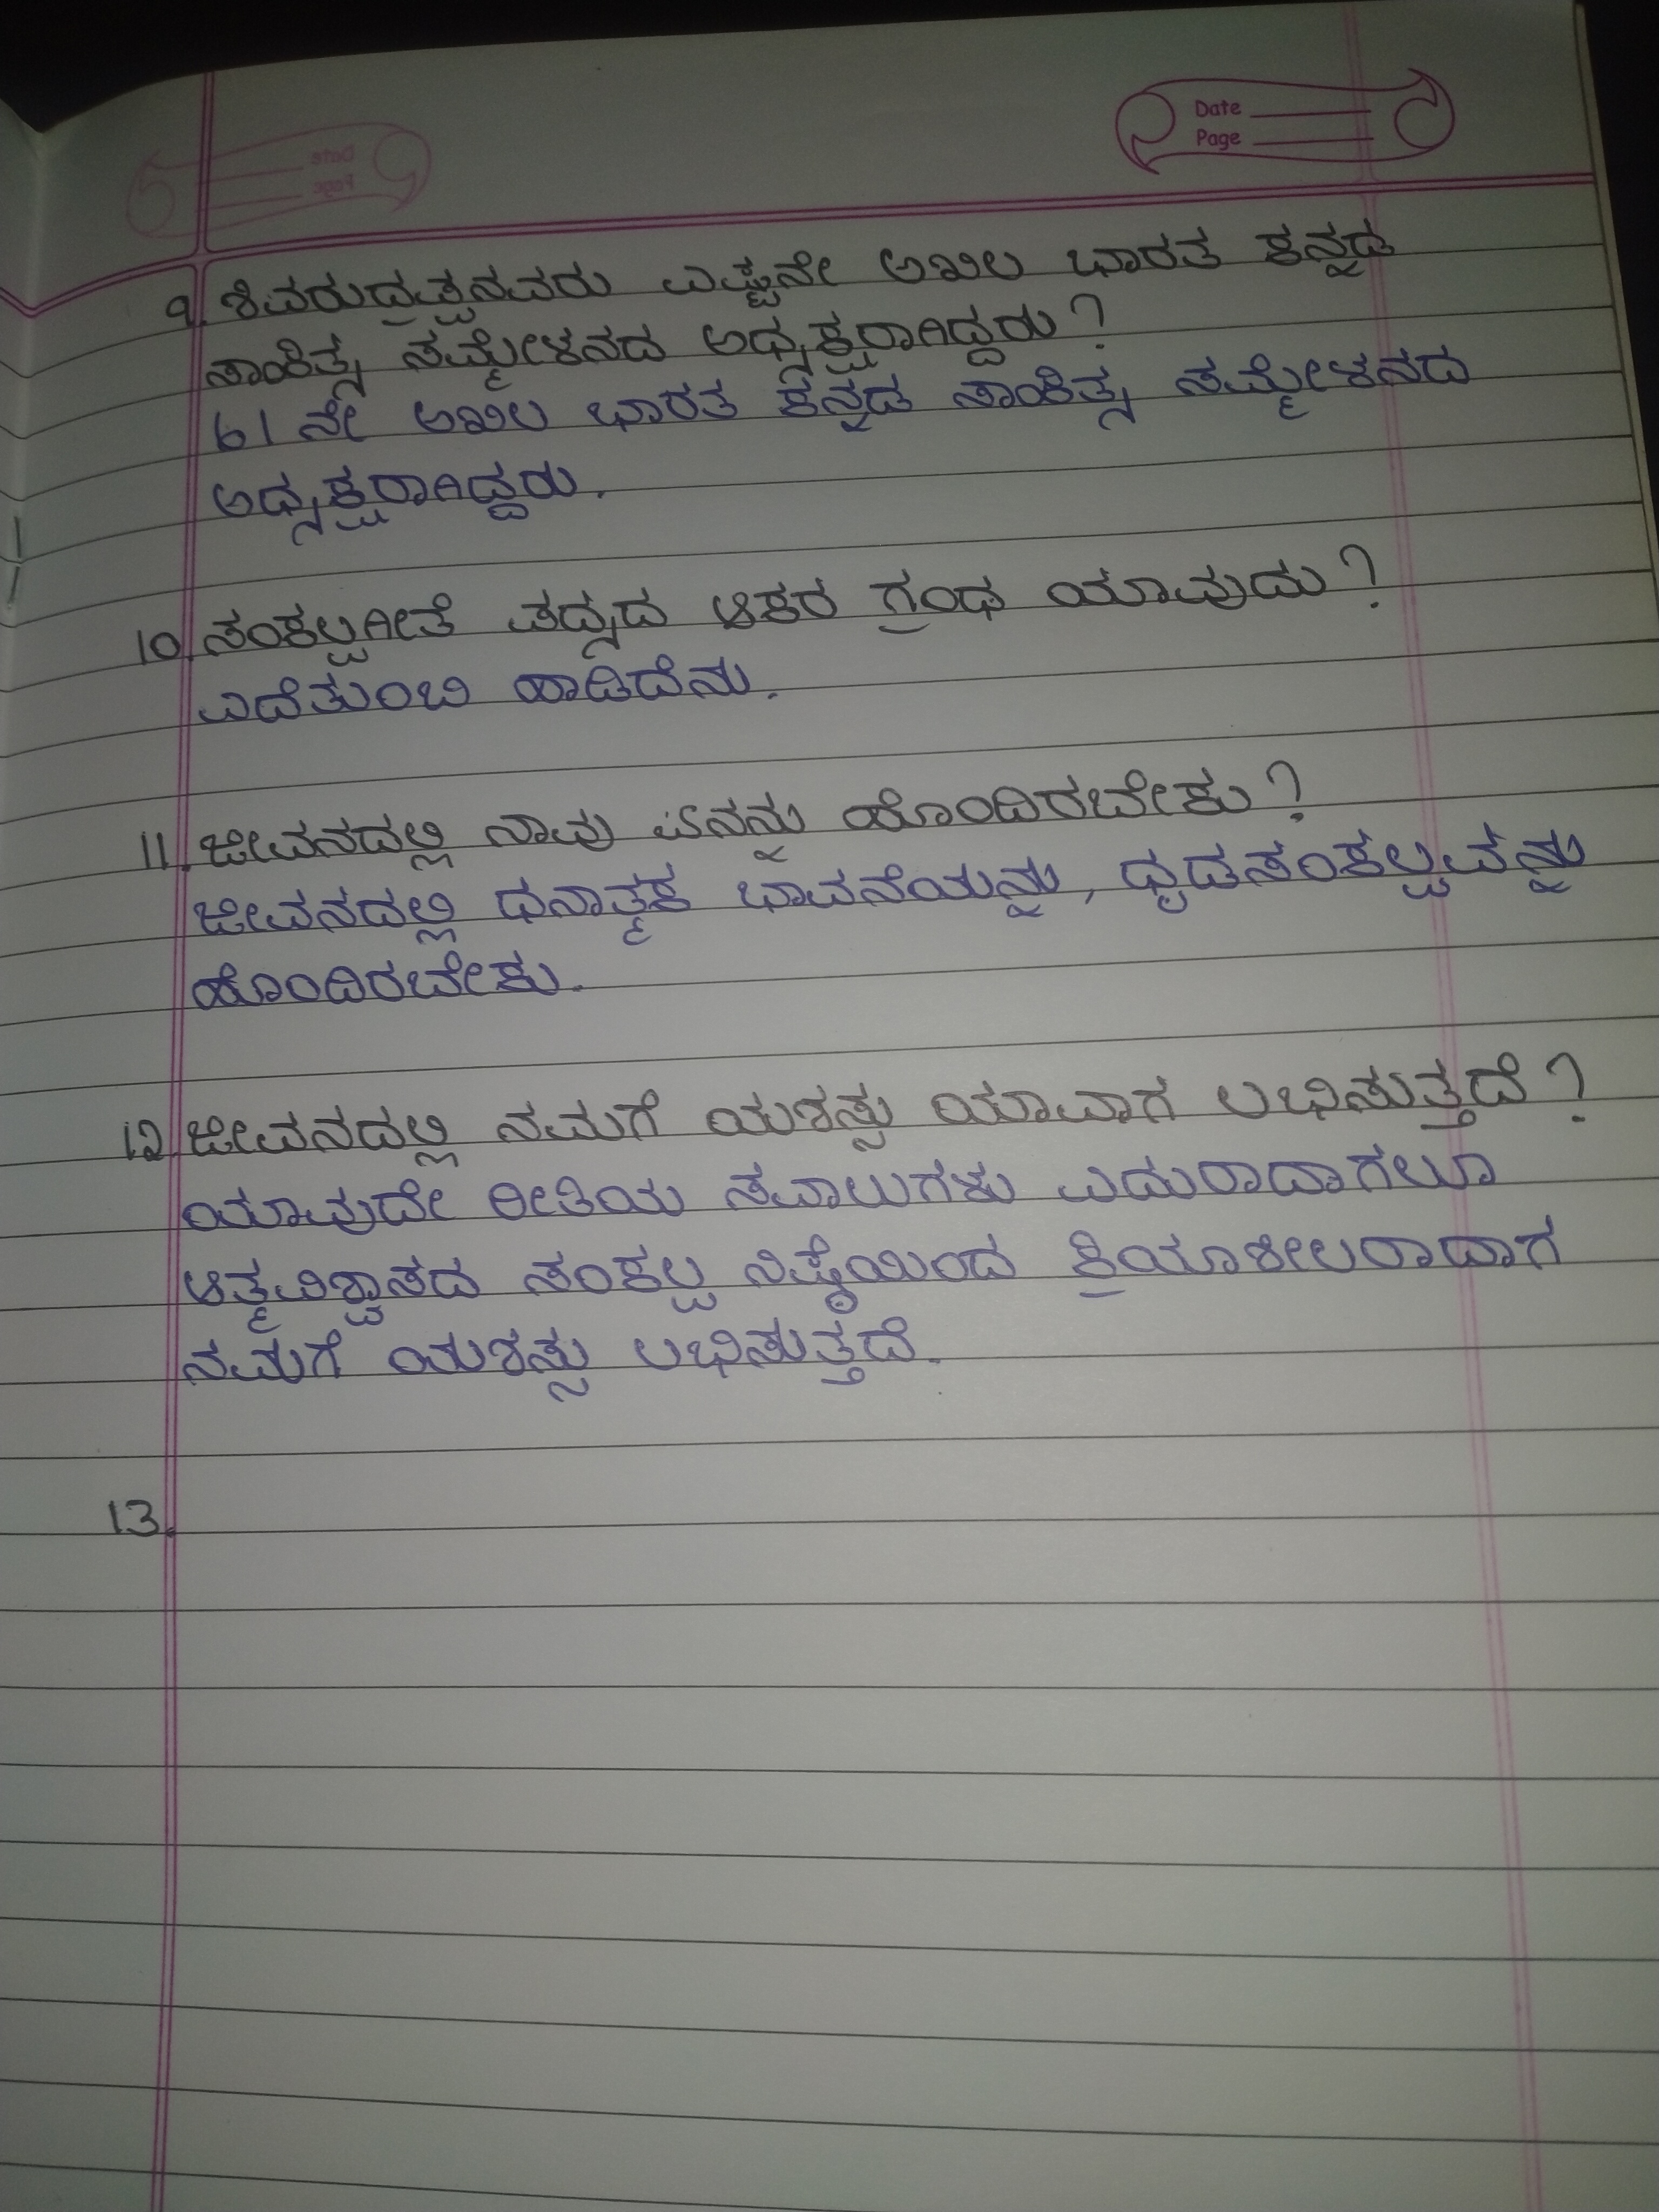 Date
Page
9. ಶಿವರುದ್ರಪ್ಪನವರು ಎಷ್ಟನೇ ಅಖಿಲ ಭಾರತ ಕನ್ನಡ
ಸಾಹಿತ್ಯ ಸಮ್ಮೇಳನದ ಅಧ್ಯಕ್ಷರಾಗಿದ್ದರು?
61 ನೇ ಅಖಿಲ ಭಾರತ ಕನ್ನಡ ಸಾಹಿತ್ಯ ಸಮ್ಮೇಳನದ
ಅಧ್ಯಕ್ಷರಾಗಿದ್ದರು.
10. ಸಂಕಲ್ಪಗೀತೆ ಪದ್ಯದ ಆಕರ ಗ್ರಂಥ ಯಾವುದು?
ಎದೆತುಂಬಿ ಹಾಡಿದೆನು.
11. ಜೀವನದಲ್ಲಿ ನಾವು ಏನನ್ನು ಹೊಂದಿರಬೇಕು?
ಜೀವನದಲ್ಲಿ ಧನಾತ್ಮಕ ಭಾವನೆಯನ್ನು, ಧೃಡಸಂಕಲ್ಪವನ್ನು
ಹೊಂದಿರಬೇಕು.
12. ಜೀವನದಲ್ಲಿ ನಮಗೆ ಯಶಸ್ಸು ಯಾವಾಗ ಲಭಿಸುತ್ತದೆ?
ಯಾವುದೇ ರೀತಿಯ ಸವಾಲುಗಳು ಎದುರಾದಾಗಲೂ
ಆತ್ಮವಿಶ್ವಾಸದ ಸಂಕಲ್ಪ ನಿಷ್ಠೆಯಿಂದ ಕ್ರಿಯಾಶೀಲರಾದಾಗ
ನಮಗೆ ಯಶಸ್ಸು ಲಭಿಸುತ್ತದೆ.
13.